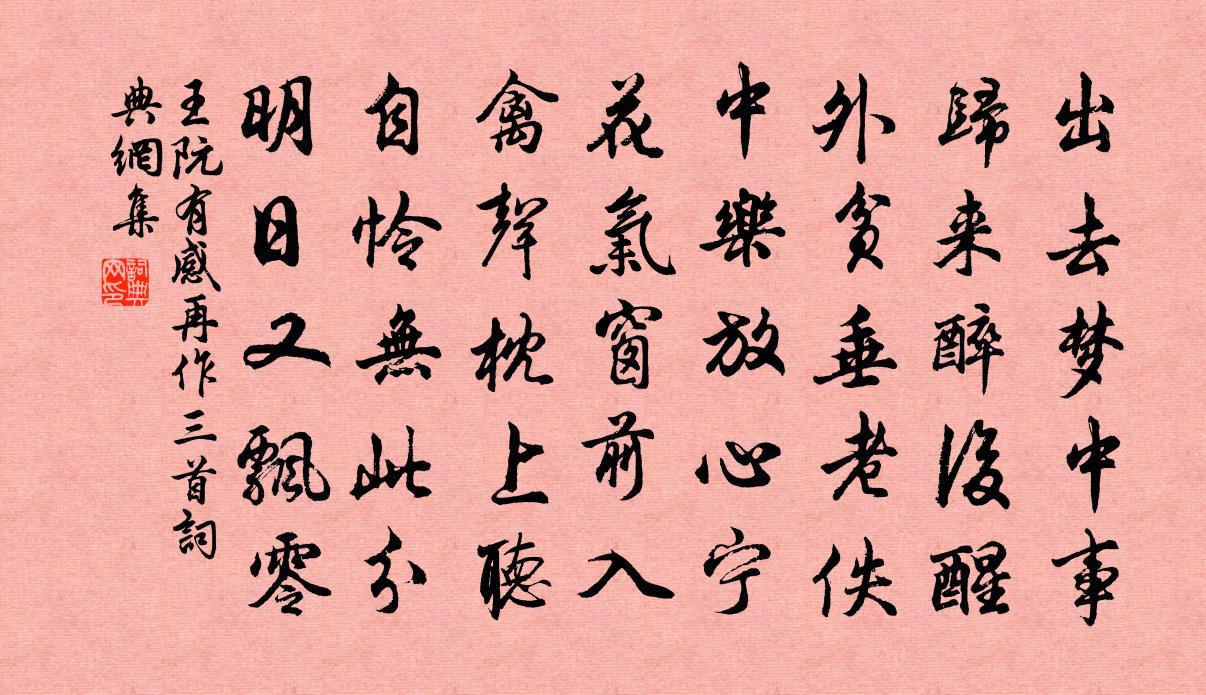 出去梦中事
歸来醉後醒
外貧垂老佚
中樂放心宁
花氣窗前入
禽聲枕上聽
自怜無此分
明日又飄零
王阮有感再作三首詞
典網集
詞典
网印